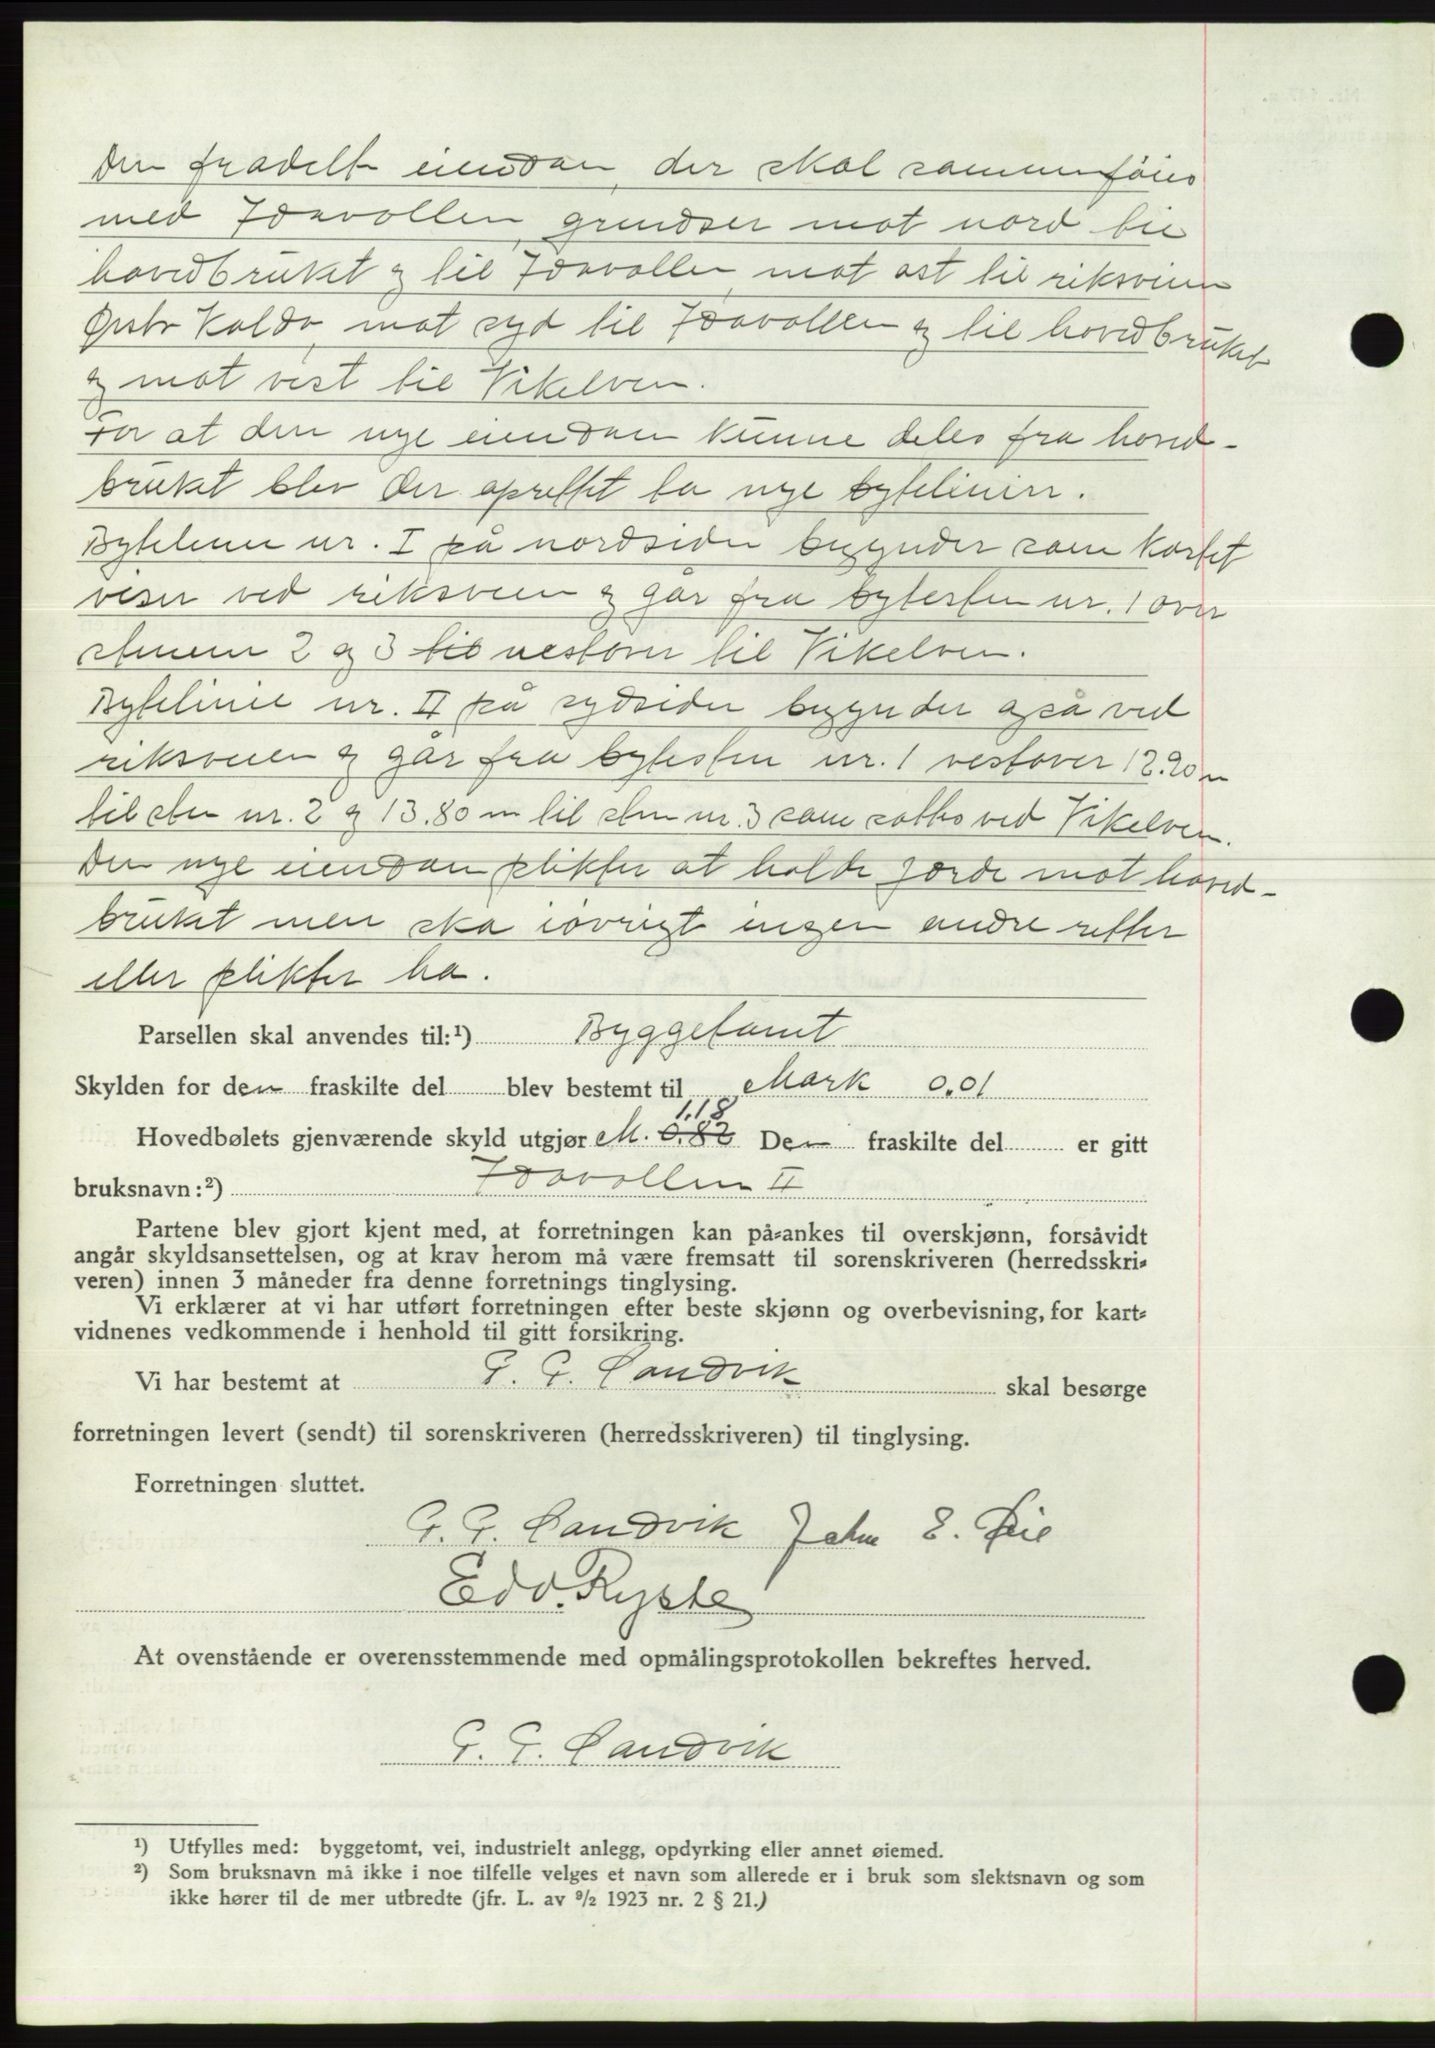 Den fradelte eiendom, der skal sammenføies
med Idavollen, grundser mot nord til
hovedbruket og til Idavollen, mot øst til riksveien
Ørsta Volda, mot syd til Idavollen og til hovedbruket
og mot vest til Vikelven.
For at den nye eiendom kunne deles fra hoved-
bruket blev der oprettet to nye bytelinier.
Bytelinie nr. I på nordsiden begynder som kartet
viser ved riksveien og går fra bytesten nr. 1 over
stenene 2 og 3 til vestover til Vikelven.
Bytelinie nr. II på sydsiden begynder også ved
riksveien og går fra bytesten nr. 1 vestover 12.90 m
til sten nr. 2 og 13.80 m til sten nr. 3 som sattes ved Vikelven.
Den nye eiendom plikter at holde gjerde mot hoved-
bruket men ska iøvrigt ingen andre retter
eller plikter ha.
Parsellen skal anvendes til:¹) Byggetomt
Skylden for den fraskilte del blev bestemt til Mark 0.01
1.18
Hovedbølets gjenværende skyld utgjør M. 0.82 Den fraskilte del er gitt
bruksnavn:²) Idavollen II
Partene blev gjort kjent med, at forretningen kan på-ankes til overskjønn, forsåvidt
angår skyldsansettelsen, og at krav herom må være fremsatt til sorenskriveren (herredsskri-
veren) innen 3 måneder fra denne forretnings tinglysing.
Vi erklærer at vi har utført forretningen efter beste skjønn og overbevisning, for kart-
vidnenes vedkommende i henhold til gitt forsikring.
Vi har bestemt at G. G. Sandvik skal besørge
forretningen levert (sendt) til sorenskriveren (herredsskriveren) til tinglysing.
Forretningen sluttet.
G. G. Sandvik John E. Øie
Edv. Ryste
At ovenstående er overensstemmende med opmålingsprotokollen bekreftes herved.
G. G. Sandvik
¹) Utfylles med: byggetomt, vei, industrielt anlegg, opdyrking eller annet øiemed.
²) Som bruksnavn må ikke i noe tilfelle velges et navn som allerede er i bruk som slektsnavn og som
ikke hører til de mer utbredte (jfr. L. av ⁹/₂ 1923 nr. 2 § 21.)